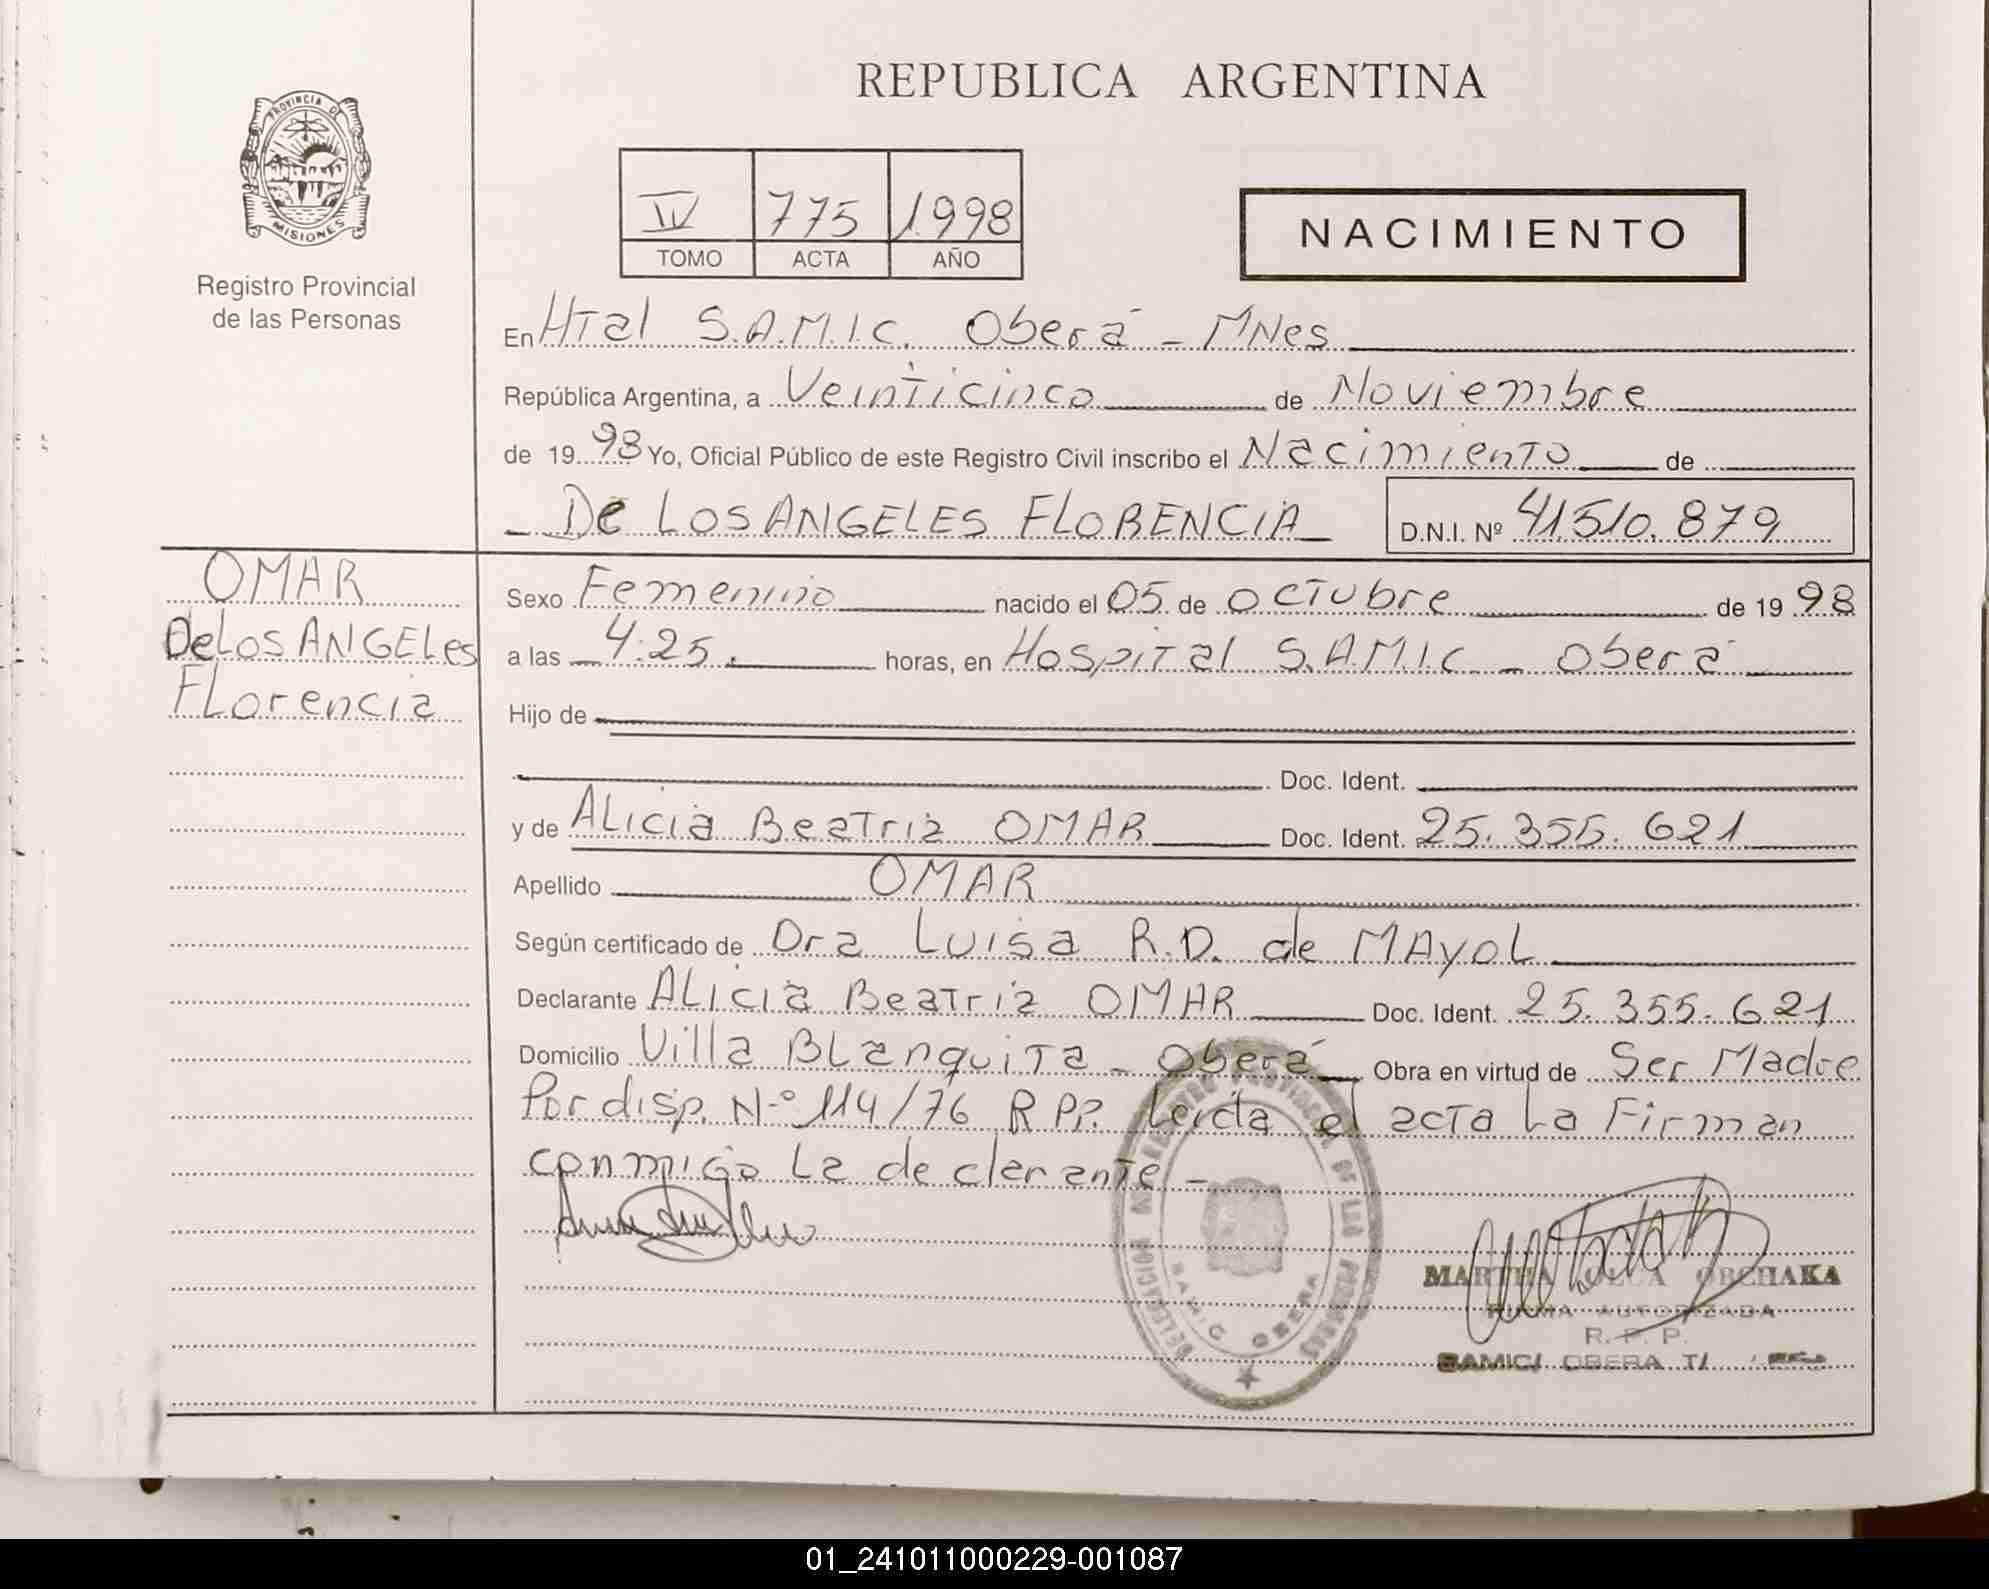 REPUBLICA ARGENTINA
PROVINCIA DE
MISIONES
Registro Provincial
de las Personas
IV 775 1998
TOMO ACTA AÑO
NACIMIENTO
En HTal S.A.M.I.C. Oberá - MNes
República Argentina, a Veinticinco de Noviembre
de 19 98 Yo, Oficial Público de este Registro Civil inscribo el Nacimiento de
De LOS ANGELES FLORENCIA D.N.I. Nº 41.510.879
OMAR
De Los ANGELes
FLorencia
Sexo Femenino nacido el 05 de octubre de 19 98
a las 4:25. horas, en Hospital S.A.M.I.C - Oberá
Hijo de
Doc. Ident.
y de ALicia Beatriz OMAR Doc. Ident. 25.355.621
Apellido OMAR
Según certificado de Dra Luisa R.D. de MAyoL
Declarante ALicia Beatriz OMAR Doc. Ident. 25.355.621
Domicilio Villa BLanquita - Oberá Obra en virtud de Ser Madre
Por disp. N-º 114/76 R PP. Leida el acta La Firman
conmigo La declarante -
DELEGACION REGISTRO PROVINCIAL DE LAS PERSONAS
SAMIC OBERA
MARTHA OBCHAKA
FIRMA AUTORIZADA
R. P. P.
SAMIC/ OBERA
01_241011000229-001087